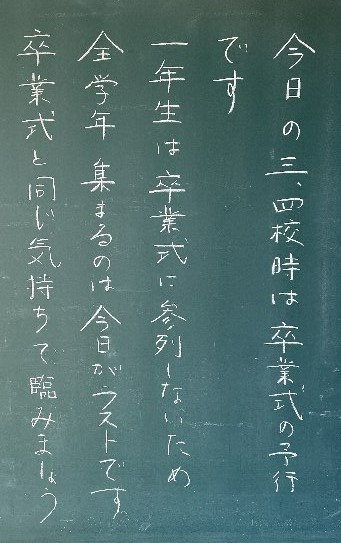 今日の三、四校時は卒業式の予行
です
一年生は卒業式に参列しないため
全学年集まるのは今日がラストです
卒業式と同じ気持ちで臨みましょう